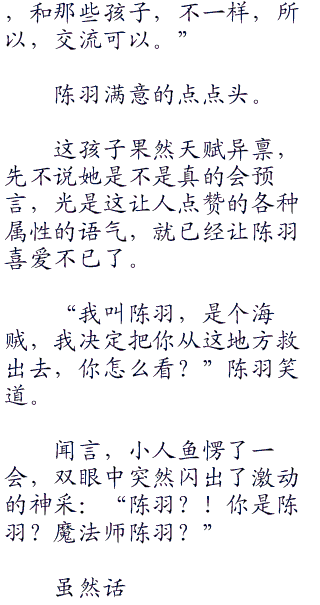 ，和那些孩子，不一样，所
以，交流可以。”
陈羽满意的点点头。
这孩子果然天赋异禀，
先不说她是不是真的会预
言，光是这让人点赞的各种
属性的语气，就已经让陈羽
喜爱不已了。
“我叫陈羽，是个海
贼，我决定把你从这地方救
出去，你怎么看？”陈羽笑
道。
闻言，小人鱼愣了一
会，双眼中突然闪出了激动
的神采：“陈羽？！你是陈
羽？魔法师陈羽？”
虽然话